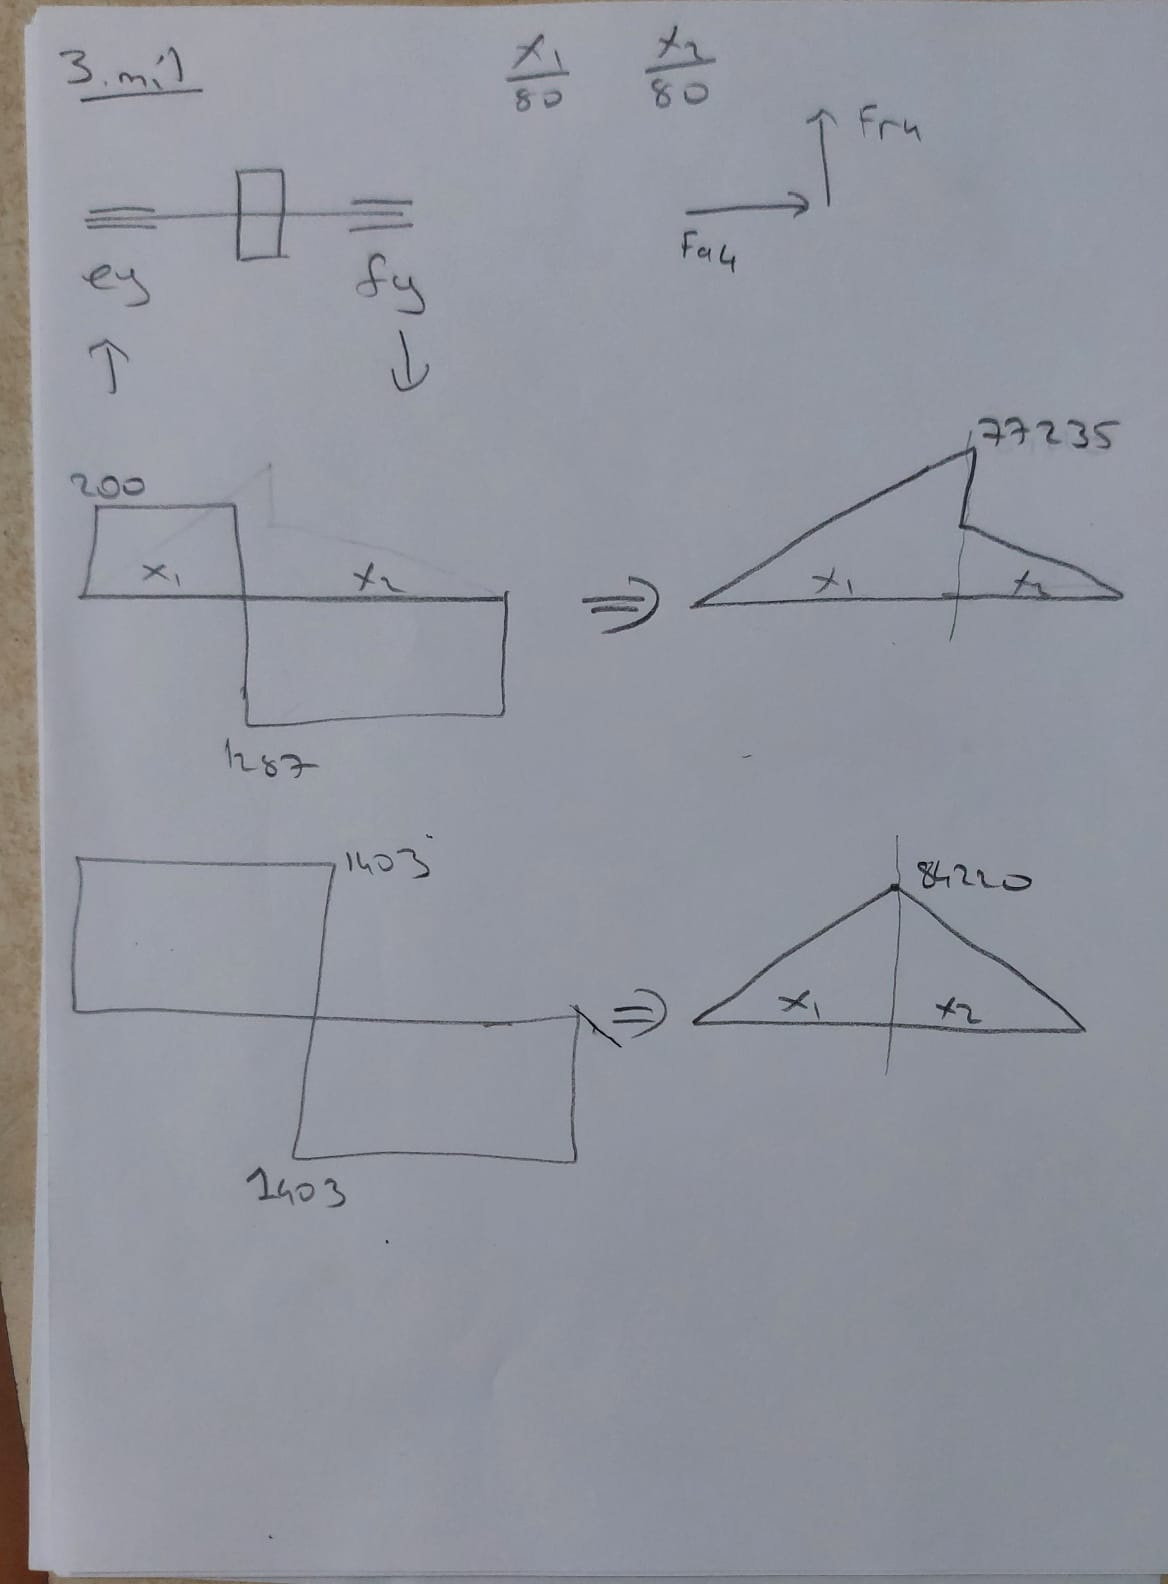 3. mil
x1 x2
80 80
Fr4
Fa4
ey fy
200
x1 x2
1287
77235
x1 x2
1403
1403
84220
x1 x2